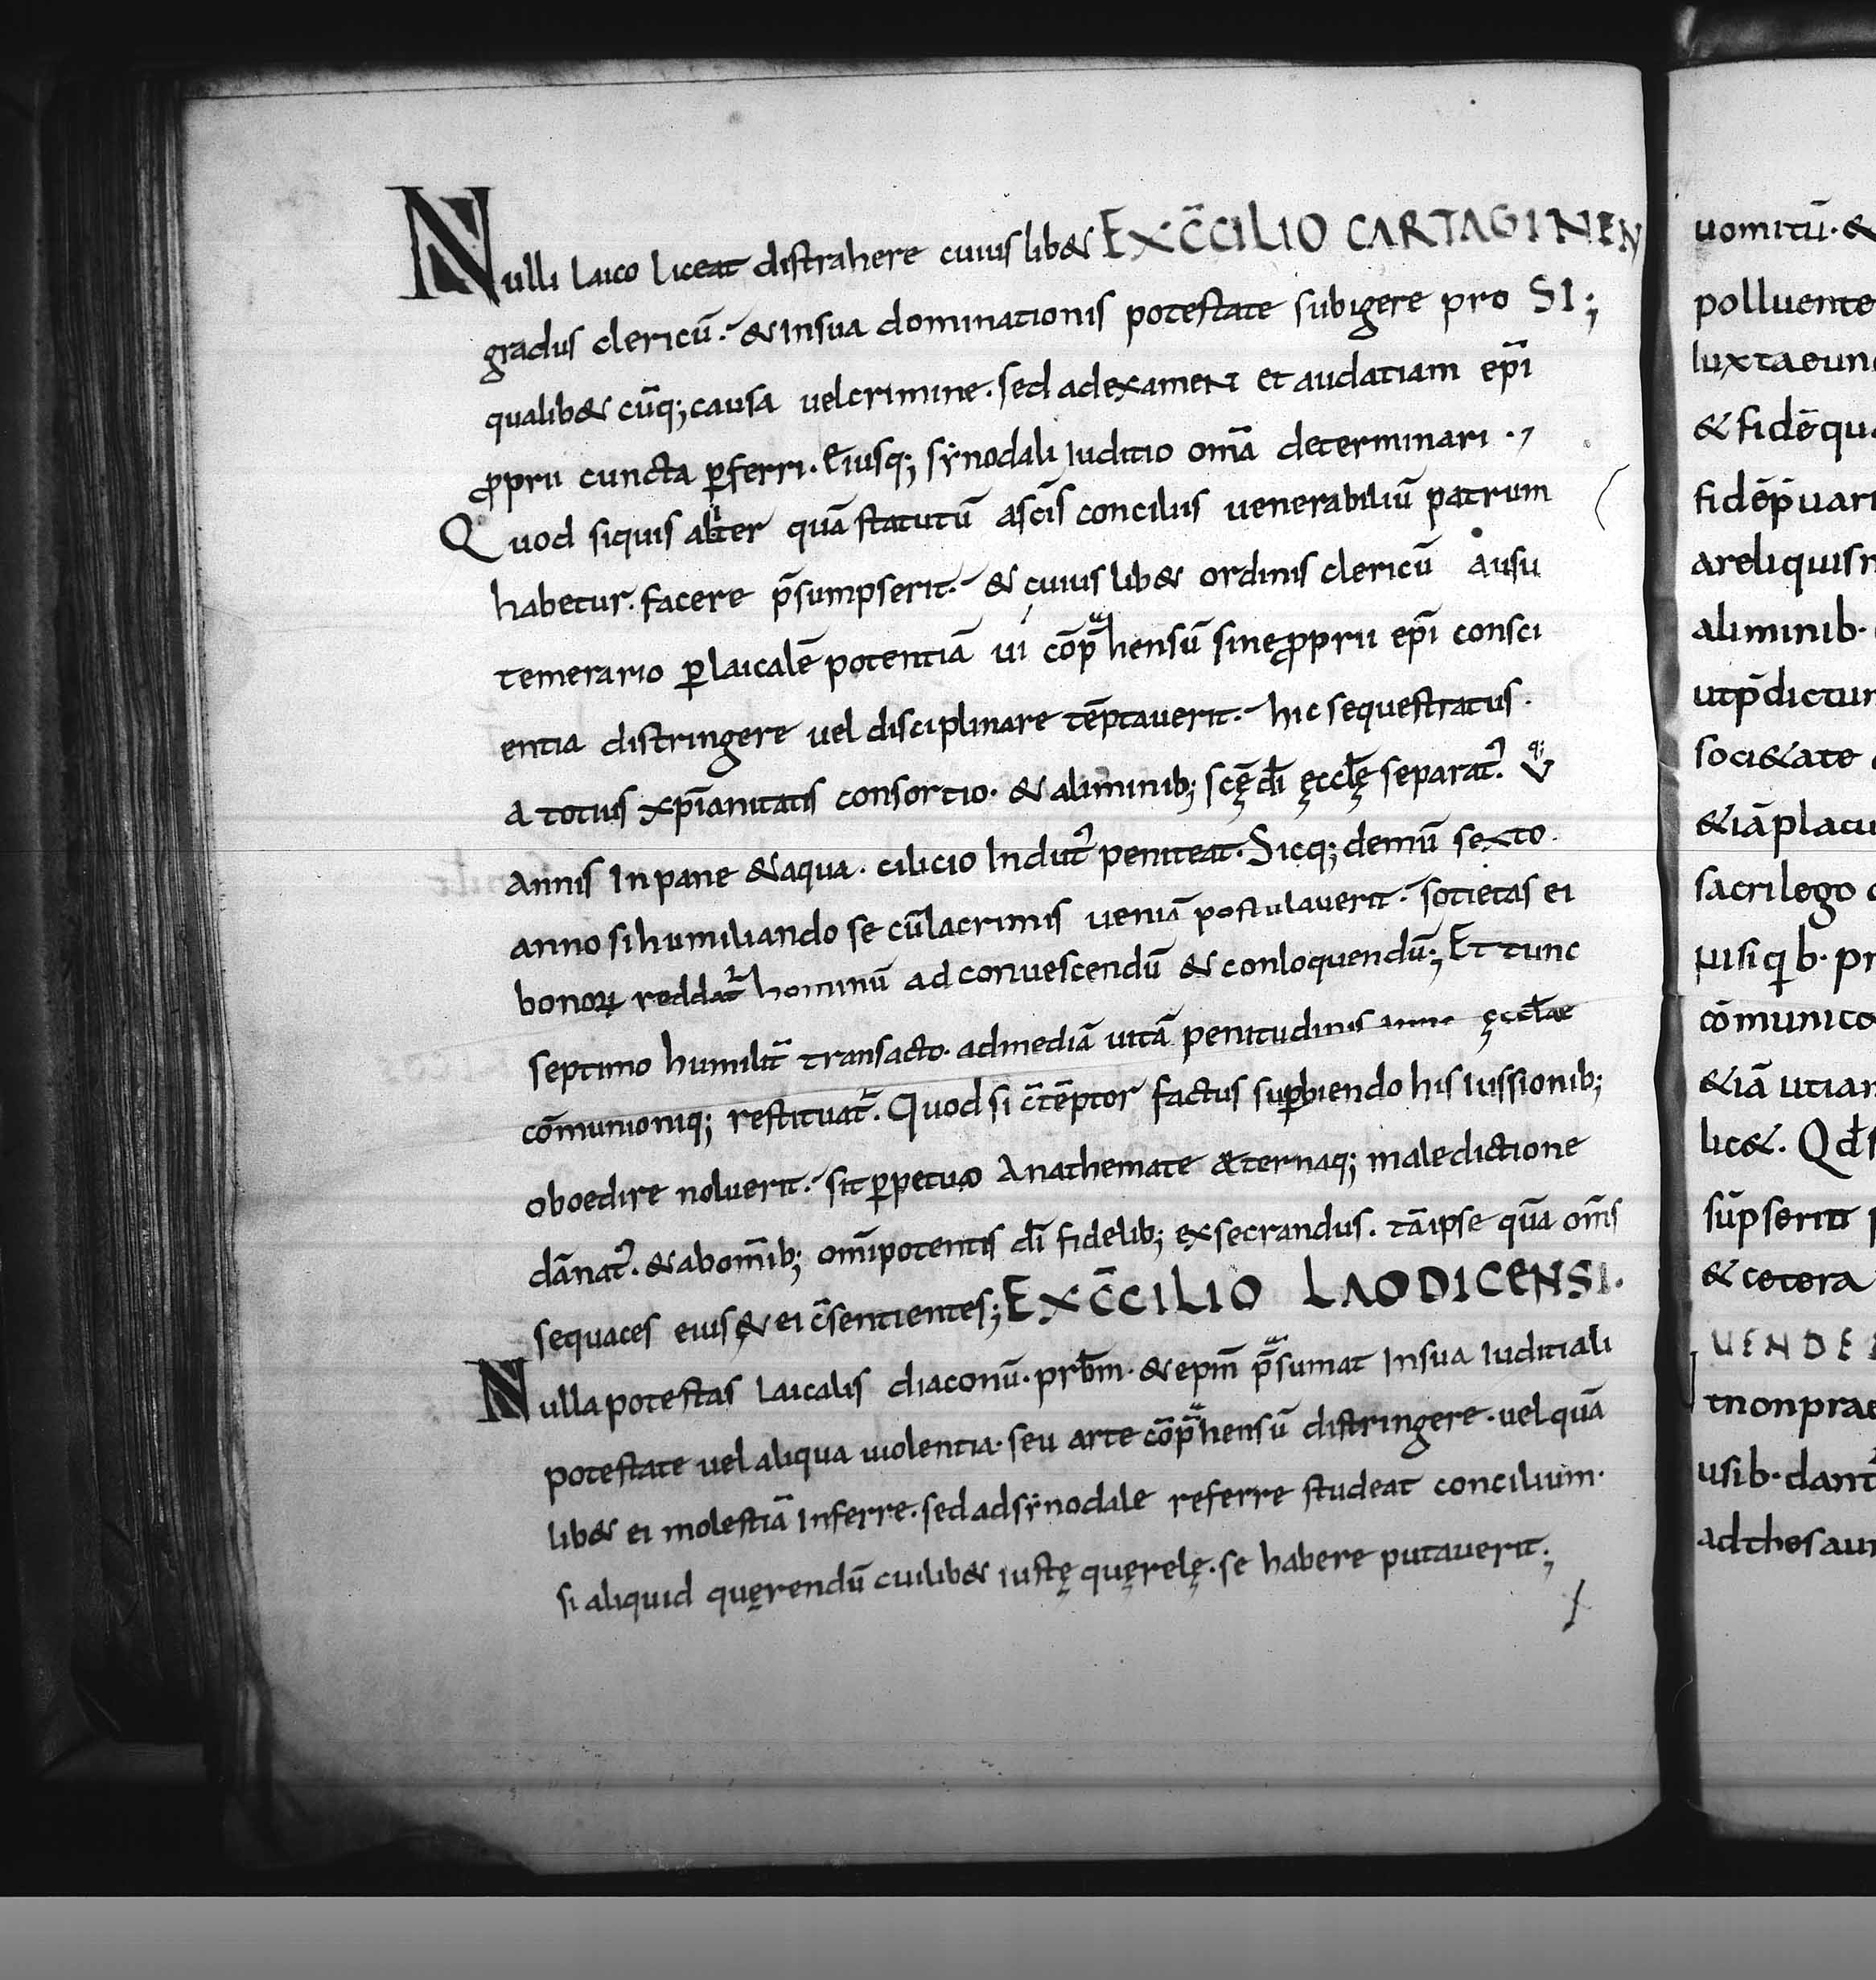 Nulli laico liceat distrahere cuiuslib& EXC̄CILIO CARTAGINEN
gradus clericū. & Insua dominationis potestate subigere pro SI;
qualib& cūq; causa uelcrimine. sed adexamen et audatiam ep̄i
ꝓprii cuncta ꝑferri. Eiusq; sẏnodali Iuditio om̄a determinari .,
Quod siquis alit̍er quā statutū asc̄is conciliis uenerabiliū patrum
habetur. facere p̄sumpserit. & cuiuslib& ordinis clericū ausu
temerario ꝑlaicalē potentiā ui cōp̄hensū sineꝓprii ep̄i consci
entia distringere uel disciplinare tēptauerit. hic sequestratus.
A totius xp̄ianitatis consortio. & aliminib; sc̄ę dī ęccl̄ę separat᾽. V
Annis Inpane &aqua. cilicio Indut᾽ peniteat. Sicq; demū sexto.
anno sihumiliando se cūlacrimis ueniā postulauerit. societas ei
bonoꝝ reddat᷑ hominū ad conuescendū & conloquendū; Et tunc
septimo humilit̄ transacto. admediā uitā penitudinis ęccl̄ae
cōmunioniq; restituat᷑. Quod si c̄tēptor factus suꝑbiendo his iussionib;
oboedire noluerit. sit ꝑpetuo Anathemate æternaq; maledictione
dānat᾽. &abom̄ib; om̄ipotentis dī fidelib; exsecrandus. tāipse quā om̄s
sequaces eius & ei c̄sentientes; EXC̄CILIO LAODICENSI.
Nulla potestas laicalis diaconū. prb̄m. & epm̄ p̄sumat Insua Iuditiali
potestate uel aliqua uiolentia. seu arte cōp̄hensū distringere. uel quā
lib& ei molestiā Inferre. sed adsẏnodale referre studeat concilium.
si aliquid quęrendū cuilib& iustę quęrelę. se habere putauerit;
uomitū. &
polluente
& fidēqu
areliquis
aliminib.
utp̄dictu
soci&ate
&iāplacu
sacrilego
cōmunico
&iā utia
lic&. Qd̄
& cetera
tnonprae
usib. dant
adthesau